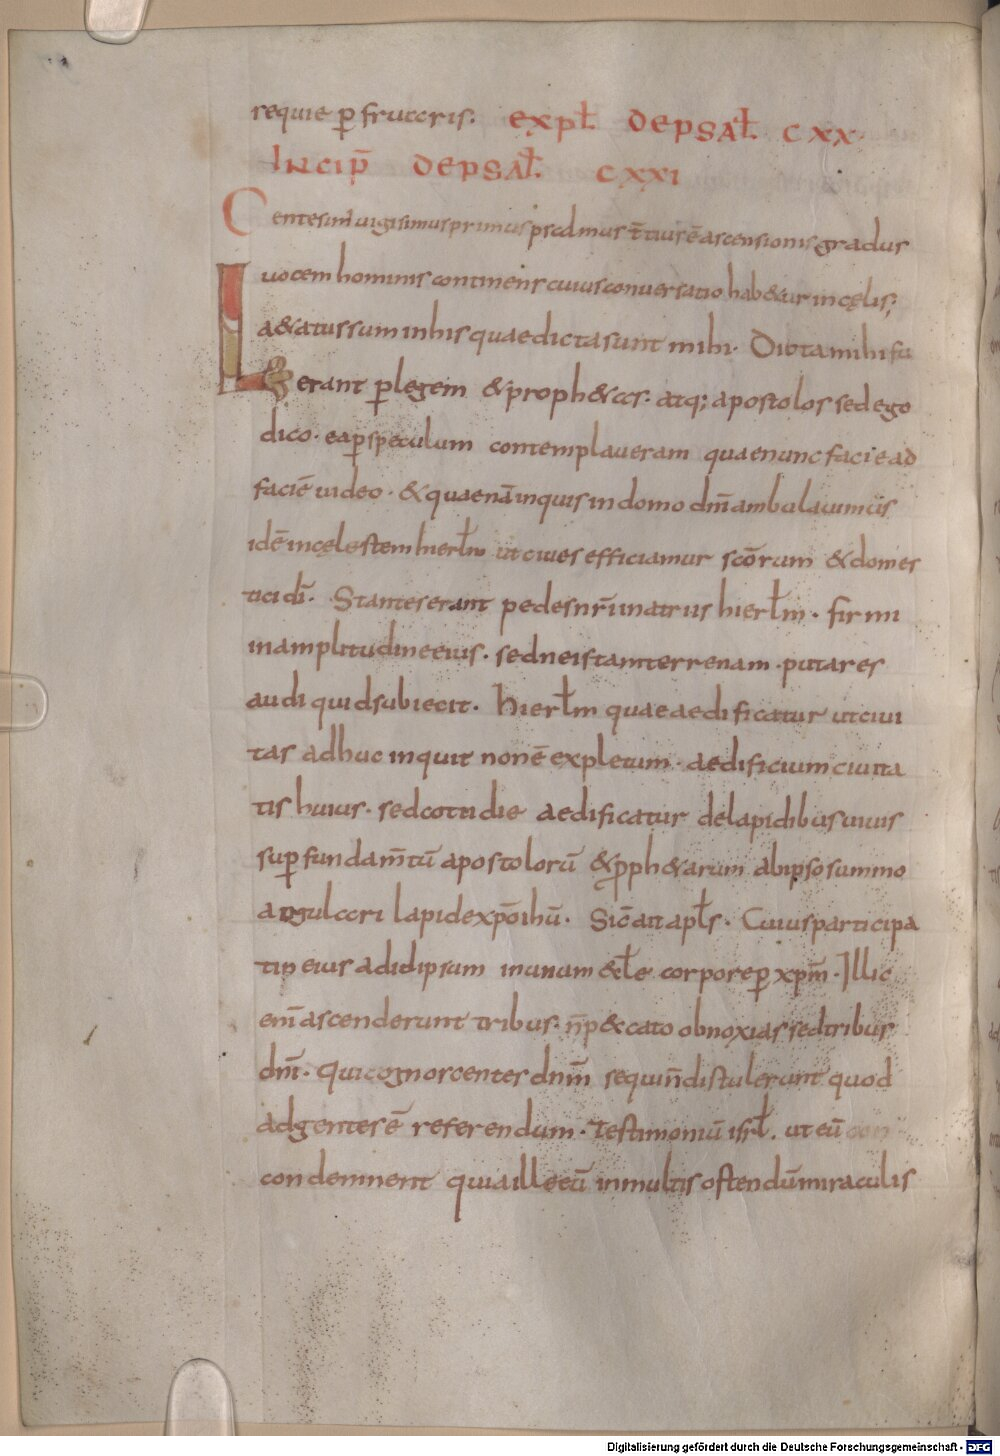 requie p̲ fruccris. expł depsał. cxx.
Incip̄ depsał. cxxi
Centesim̄ uigisimus primus psałmus t̄tius ē ascensionis gradus
uocem hominis continens cuius conuersatio hab&ur in cęlis;
Laetatus sum in his quae dicta sunt mihi. Dicta mihi fu
erant p̲ legem & proph&as. atq; apostolos sed ego
dico. ea p̲ speculum contemplaueram quae nunc facie ad
faciē uideo. & quae nā inquis in domo dn̄i ambulauimus
idē in cęlestem hierłm ut ciues efficiamur sc̄orum & domes
tici dī. Stantes erant pedes nr̄i in atriis hierłm. firmi
in amplitudine eius. sed ne istam terrenam. putares
audi quid subiecit. hierłm quae aedificatur ut ciui
tas adhuc inquit non ē expletum. aedificium ciuita
tis huius. sed cottidie aedificatur de lapidibus uiuis
sup̲ fundam̄tū apostolorū & p̲ph&arum ab ipso summo
angulari lapide xp̄o ihū. Sic̄ ait apłs. Cuius participa
tio eius ad idipsum in unam &łe corpore p̲ xp̄m. Illic
enī ascenderunt tribus. n̄ p&cato obnoxias sed tribus
dn̄i. qui cognoscentes dn̄m sequi n̄ distulerunt quod
ad gentes ē referendum. Testimoniū isrł. ut eū con
condemnent quia ille eū in multis ostendū miraculis
Digitalisierung gefördert durch die Deutsche Forschungsgemeinschaft - DFG